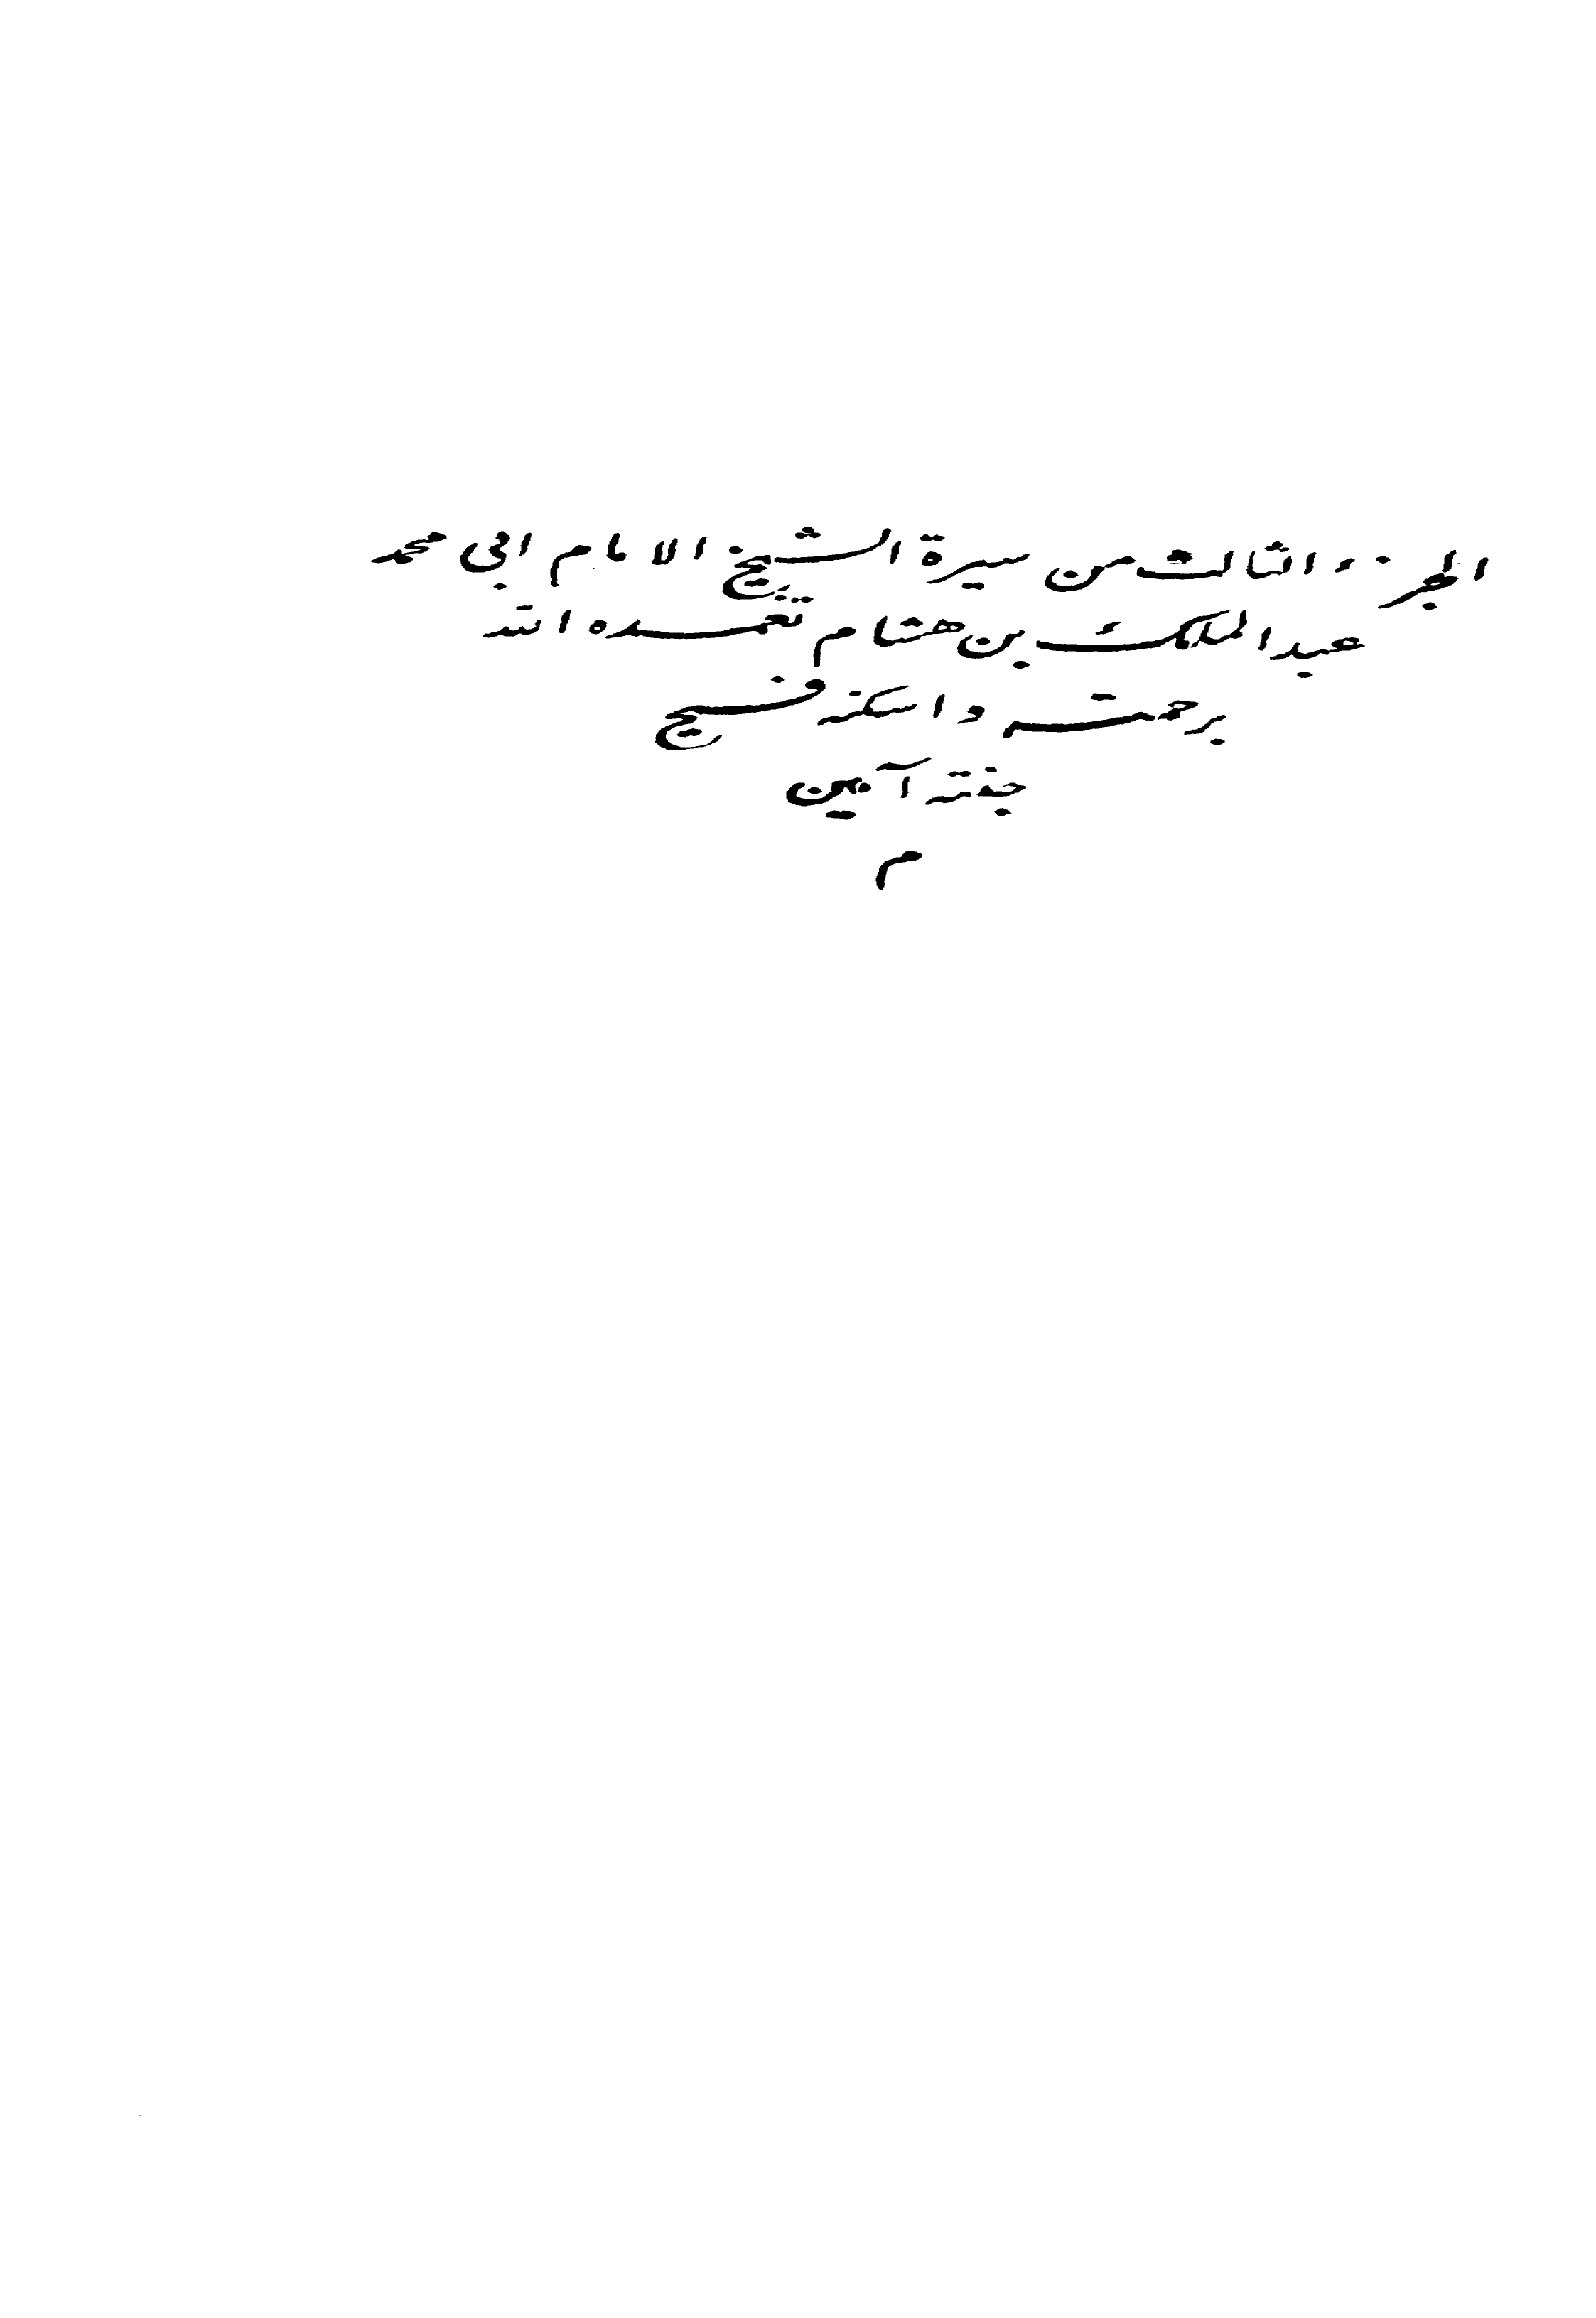 الجزء الثالث من سيرة الشيخ الامام ابى محمد
عبد الملك بن هشام تغمده الله
برحمته واسكنه فسيح
جنته آمين
م